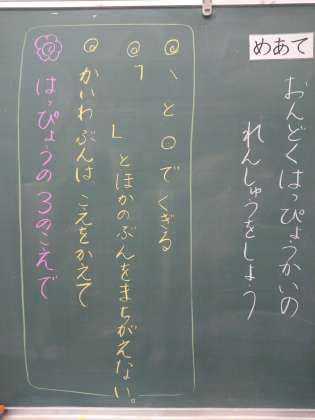 めあて
おんどくはっぴょうかいの
れんしゅうをしよう
◎、と○でくぎる
◎「 」とほかのぶんをまちがえない。
◎かいわぶんはこえをかえて
はっぴょうの3のこえで